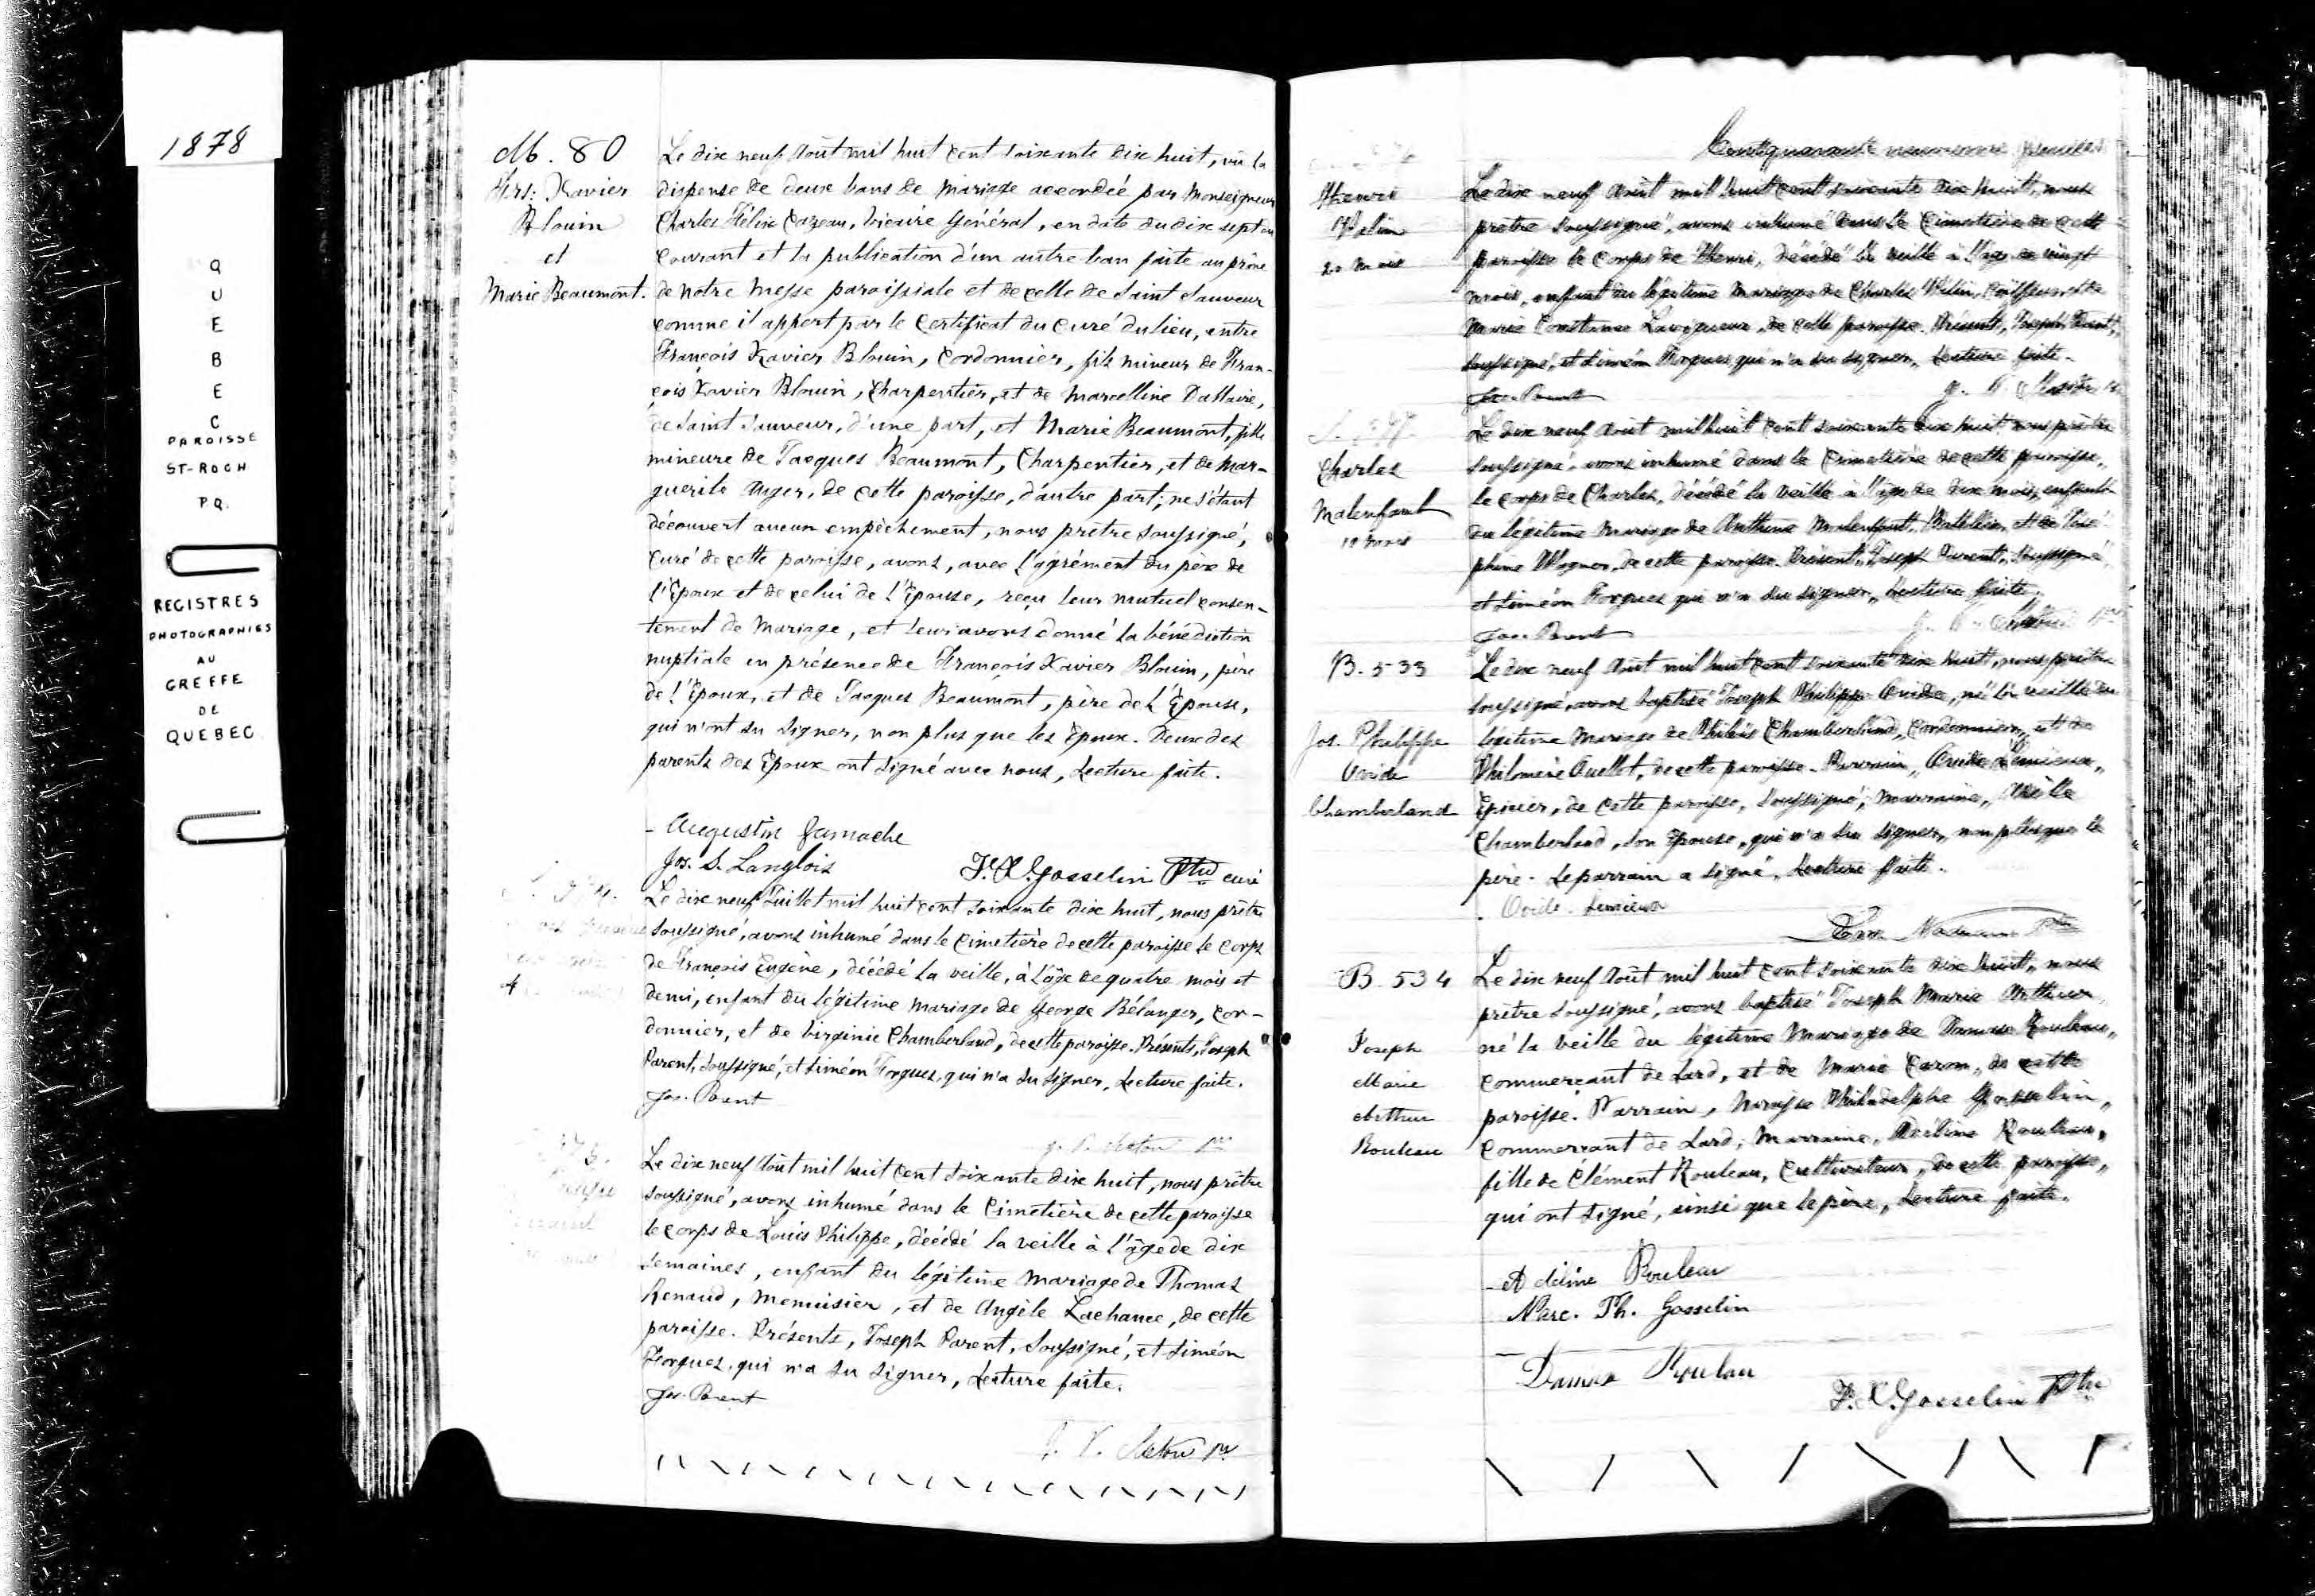 1878
QUEBEC
PAROISSE
ST-ROCH
P.Q.
REGISTRES
PHOTOGRAPHIES
AU
GREFFE
DE
QUEBEC
M. 80
Frs: Xavier
Blouin
et
Marie Beaumont.
Le dix neuf Août mil huit cent soixante dix huit, vu la
dispense de deux bans de Mariage accordée par Monseigneur
Charles Félix Cazeau, Vicaire Général, en date du dix sept du
courant et la publication d'un autre ban faite au prône
de notre Messe paroissiale et de celle de Saint Sauveur
comme il appert par le Certificat du Curé du lieu, entre
François Xavier Blouin, Cordonnier, fils mineur de Fran-
çois Xavier Blouin, Charpentier, et de Marcelline Dallaire,
de Saint Sauveur, d'une part, et Marie Beaumont, fille
mineure de Jacques Beaumont, Charpentier, et de Mar-
guerite Auger, de cette paroisse, d'autre part; ne s'étant
découvert aucun empêchement, nous prêtre soussigné,
Curé de cette paroisse, avons, avec l'agrément du père de
l'Epoux et de celui de l'Epouse, reçu leur mutuel consen-
tement de Mariage, et leur avons donné la bénédiction
nuptiale en présence de François Xavier Blouin, père
de l'Epoux, et de Jacques Beaumont, père de l'Epouse,
qui n'ont su signer, non plus que les Epoux. Deux des
parents des Epoux ont signé avec nous, Lecture faite.
Augustin Gamache
Jos. S. Langlois
F. X. Gosselin Ptre curé
Le dix neuf Juillet mil huit cent soixante dix huit, nous prêtre
soussigné, avons inhumé dans le Cimetière de cette paroisse le corps
de François Eugène, décédé la veille, à l'âge de quatre mois et
demi, enfant du légitime Mariage de George Bélanger, Cor-
donnier, et de Virginie Chamberland, de cette paroisse. Présents, Joseph
Parent, soussigné, et Siméon Forgues, qui n'a su signer, Lecture faite.
Jos. Parent
Le dix neuf Août mil huit cent soixante dix huit, nous prêtre
soussigné, avons inhumé dans le Cimetière de cette paroisse
le corps de Louis Philippe, décédé la veille à l'âge de dix
semaines, enfant du légitime Mariage de Thomas
Renaud, Menuisier, et de Angèle Lachance, de cette
paroisse. Présents, Joseph Parent, soussigné, et Siméon
Forgues, qui n'a su signer, Lecture faite.
Jos. Parent
Henri
20 mois
Le dix neuf Août mil huit cent soixante dix huit, nous
prêtre soussigné, avons inhumé dans le Cimetière de cette
paroisse le corps de Henri, décédé la veille à l'âge de vingt
mois, enfant du légitime Mariage de Charles
Marie Constance Lavigueur, de cette paroisse. Présents, Joseph Parent,
soussigné, et Siméon Forgues qui n'a su signer, Lecture faite.
Jos. Parent
Charles
Malenfant
Le dix neuf Août mil huit cent soixante dix huit nous prêtre
soussigné, avons inhumé dans le Cimetière de cette paroisse,
le corps de Charles, décédé la veille à l'âge de dix mois, enfant
du légitime Mariage de Anthime Malenfant, Batelier, et de José-
phine Wagner, de cette paroisse. Présents, Joseph Parent, soussigné,
et Siméon Forgues qui n'a su signer, Lecture faite.
Jos. Parent
B. 533
Jos. Philippe
Ovide
Chamberland
Le dix neuf Août mil huit cent soixante dix huit, nous prêtre
soussigné, avons baptisé Joseph Philippe Ovide, né la veille du
légitime Mariage de Chamberland, Cordonnier, et de
Philomène Ouellet, de cette paroisse. Parrain, Ovide Lemieux,
Epicier, de cette paroisse, soussigné; Marraine,
Chamberland, son Epouse, qui n'a su signer, non plus que le
père. Le parrain a signé, Lecture faite.
Ovide Lemieux
B. 534
Joseph
Marie
Arthur
Rouleau
Le dix neuf Août mil huit cent soixante dix huit, nous
prêtre soussigné, avons baptisé Joseph Marie Arthur
né la veille du légitime Mariage de Damase Rouleau,
commerçant de Lard, et de Marie Caron, de cette
paroisse. Parrain, Narcisse Philadelphe Gosselin,
Commerçant de Lard; Marraine, Adéline Rouleau,
fille de Clément Rouleau, Cultivateur, de cette paroisse,
qui ont signé, ainsi que le père, Lecture faite.
Adéline Rouleau
Narc. Ph. Gosselin
Damase Rouleau
F. X. Gosselin Ptre